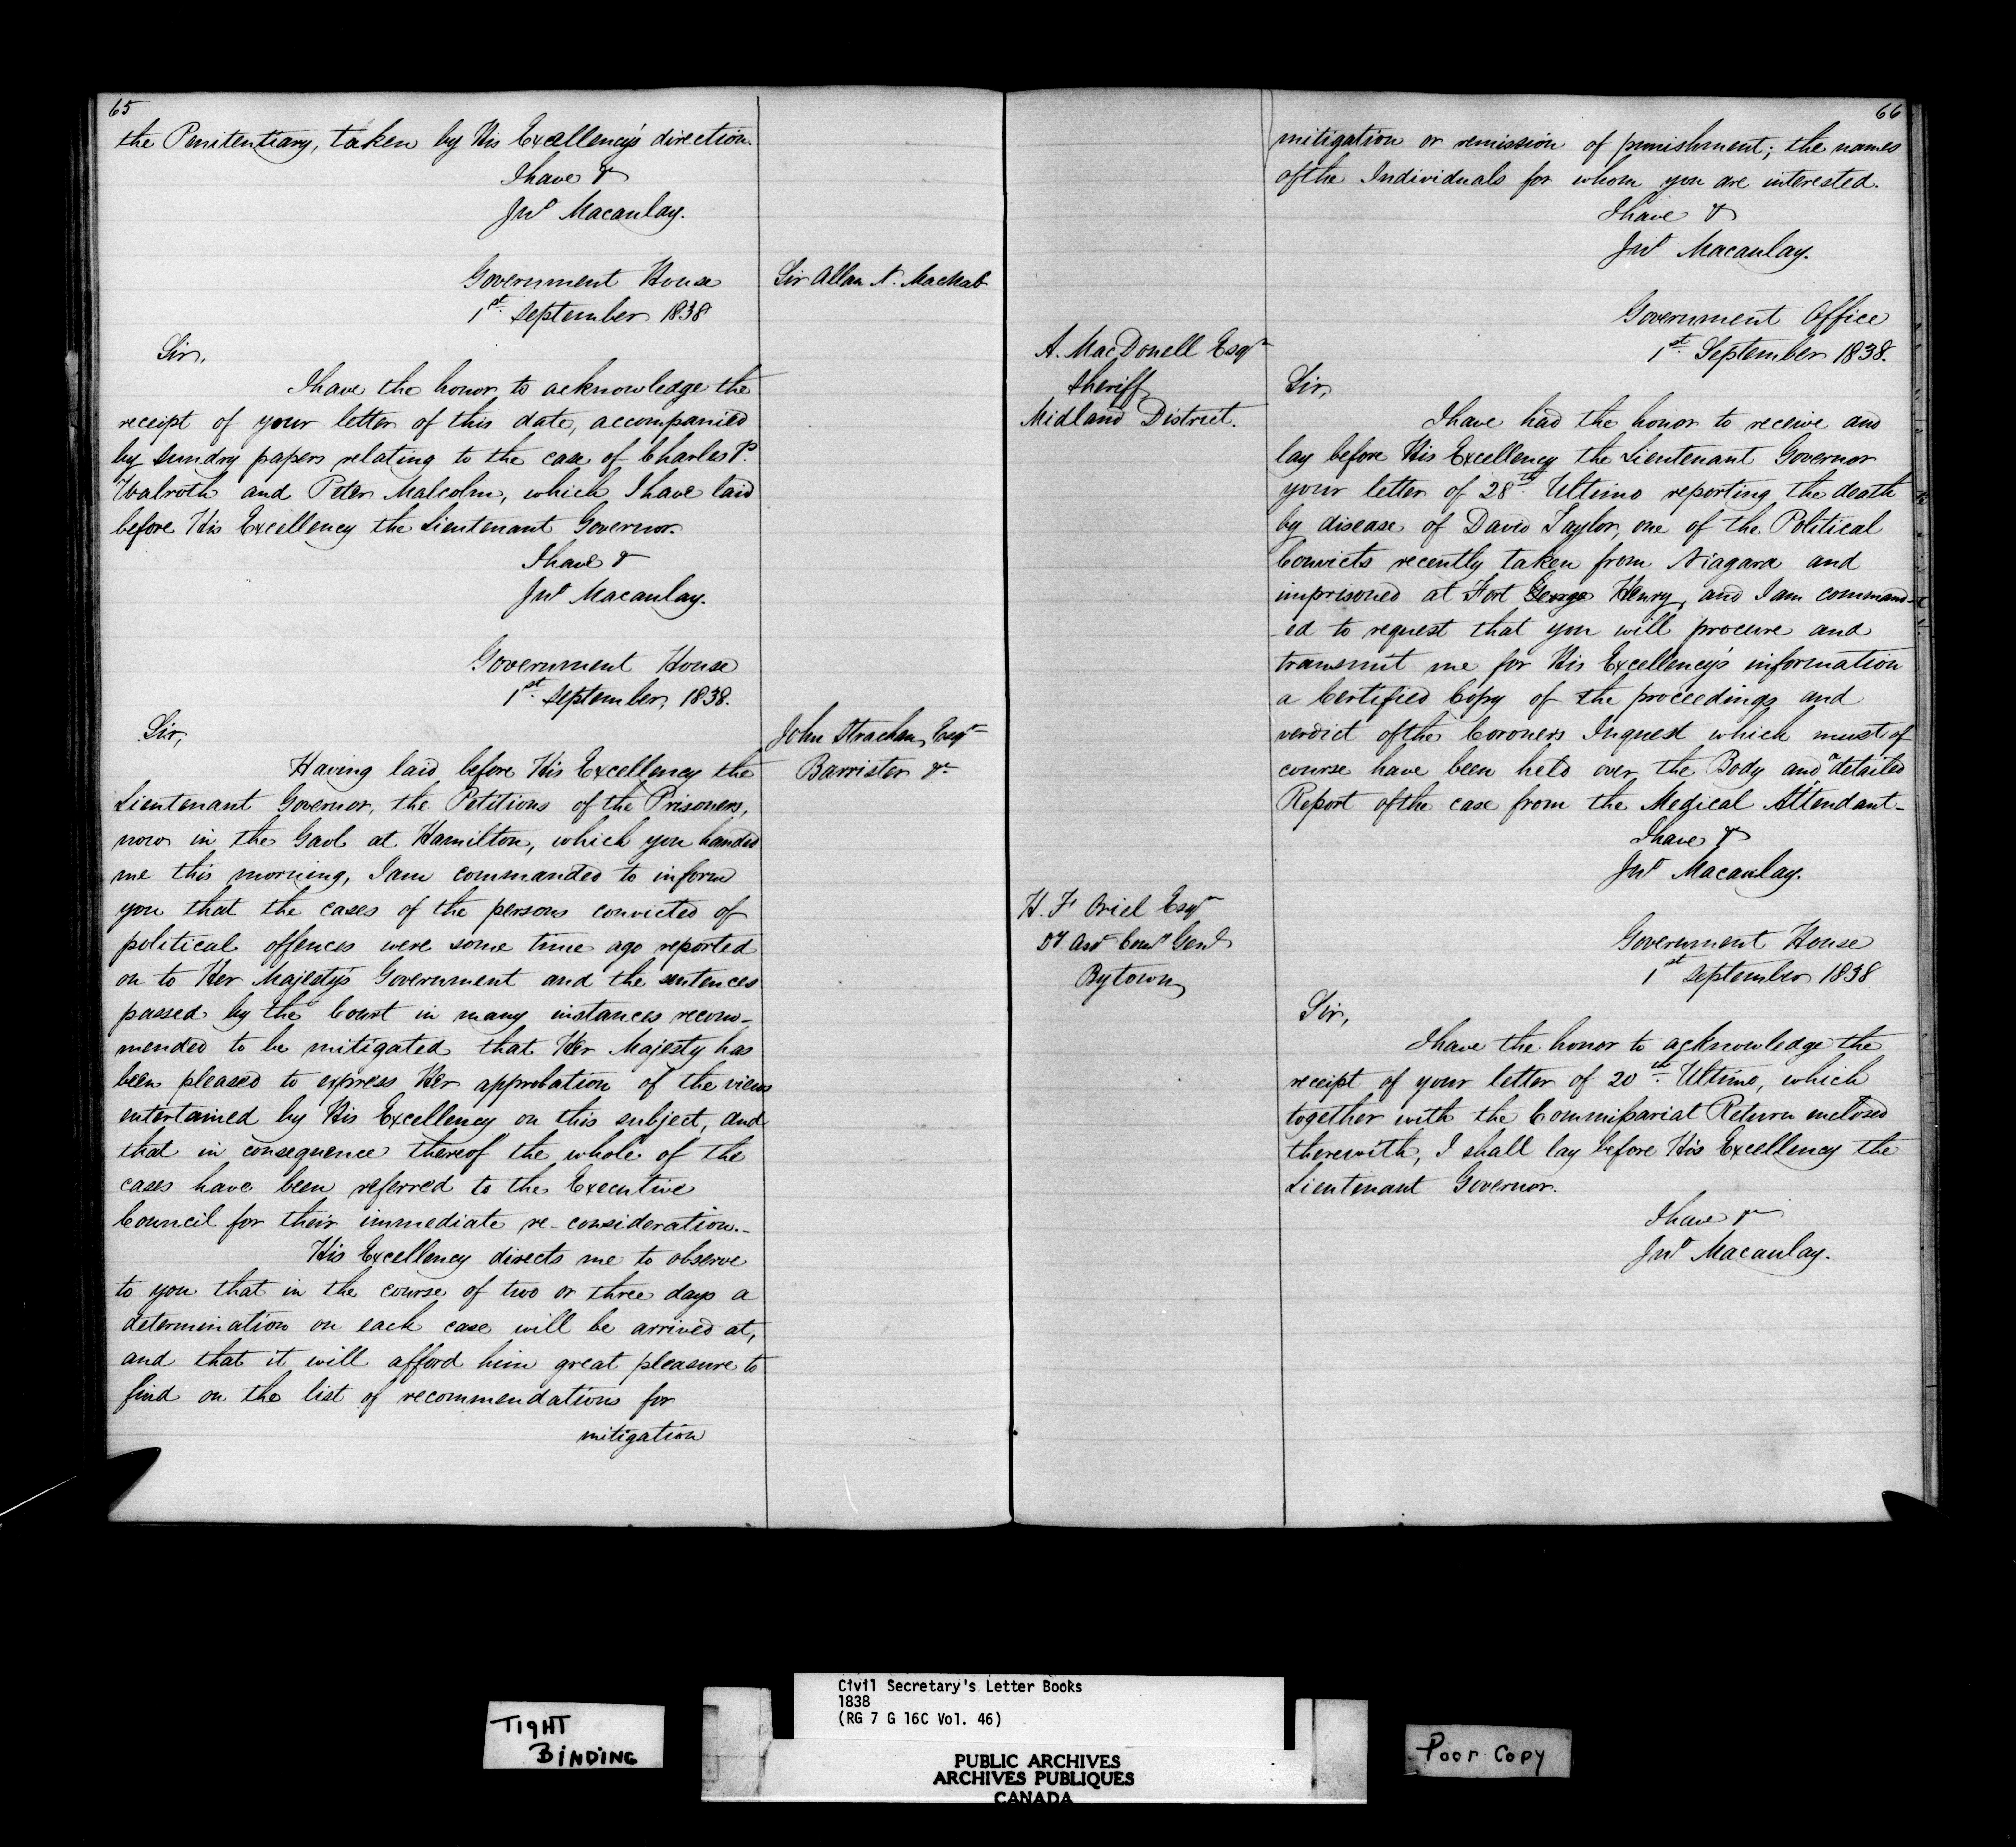 65
the Penitentiary, taken by His Excellency's direction.
I have &
Jno Macaulay.
Government House
1st September 1838
Sir Allan N. MacNab
Sir,
I have the honor to acknowledge the
receipt of your letter of this date, accompanied
by sundry papers relating to the case of Charles P.
Walroth and Peter Malcolm, which I have laid
before His Excellency the Lieutenant Governor.
I have &
Jno Macaulay.
Government House
1st September, 1838.
John Strachan, Esqr
Barrister &c
Sir,
Having laid before His Excellency the
Lieutenant Governor, the Petitions of the Prisoners,
now in the Gaol at Hamilton, which you handed
me this morning, I am commanded to inform
you that the cases of the persons convicted of
political offences were some time ago reported
on to Her Majesty's Government and the sentences
passed by the Court in many instances recom-
mended to be mitigated that Her Majesty has
been pleased to express Her approbation of the views
entertained by His Excellency on this subject, and
that in consequence thereof the whole of the
cases have been referred to the Executive
Council for their immediate re-consideration.-
His Excellency directs me to observe
to you that in the course of two or three days a
determination on each case will be arrived at,
and that it will afford him great pleasure to
find on the list of recommendations for
mitigation
66
mitigation or remission of punishment; the names
of the Individuals for whom you are interested.
I have &
Jno Macaulay.
Government Office
1st September 1838.
A. MacDonell Esqr
Sheriff
Midland District.
Sir,
I have had the honor to receive and
lay before His Excellency the Lieutenant Governor
your letter of 28th Ultimo reporting the death
by disease of David Taylor, one of the Political
Convicts recently taken from Niagara and
imprisoned at Fort George Henry, and I am command-
-ed to request that you will procure and
transmit me for His Excellency's information
a Certified Copy of the proceedings and
verdict of the Coroners Inquest which must of
course have been held over the Body and a detailed
Report of the case from the Medical Attendant-
I have &
Jno Macaulay.
H. F. Oriel Esqr
Dy Asst Comy Genl
Bytown
Government House
1st September 1838
Sir,
I have the honor to acknowledge the
receipt of your letter of 20th Ultimo, which
together with the Commissariat Return enclosed
therewith, I shall lay before His Excellency the
Lieutenant Governor.
I have &c
Jno Macaulay.
TIGHT
BINDING
Civil Secretary's Letter Books
1838
(RG 7 G 16C Vol. 46)
PUBLIC ARCHIVES
ARCHIVES PUBLIQUES
CANADA
Poor Copy